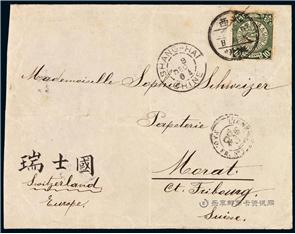 SHANG-HAI
CHINE
Mademoiselle Sophie Schweizer
Papeterie
Morat
Ct. Fribourg
Suisse.
瑞士國
Switzerland
Europe.